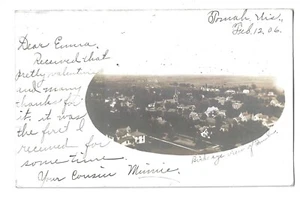 Tomah, Wis,
Feb. 12, 06.
Dear Emma,
Received that
pretty valentine
and many
thanks for
it. it was
the first I
received for
some time.
Your Cousin Minnie.
Bird's eye view of